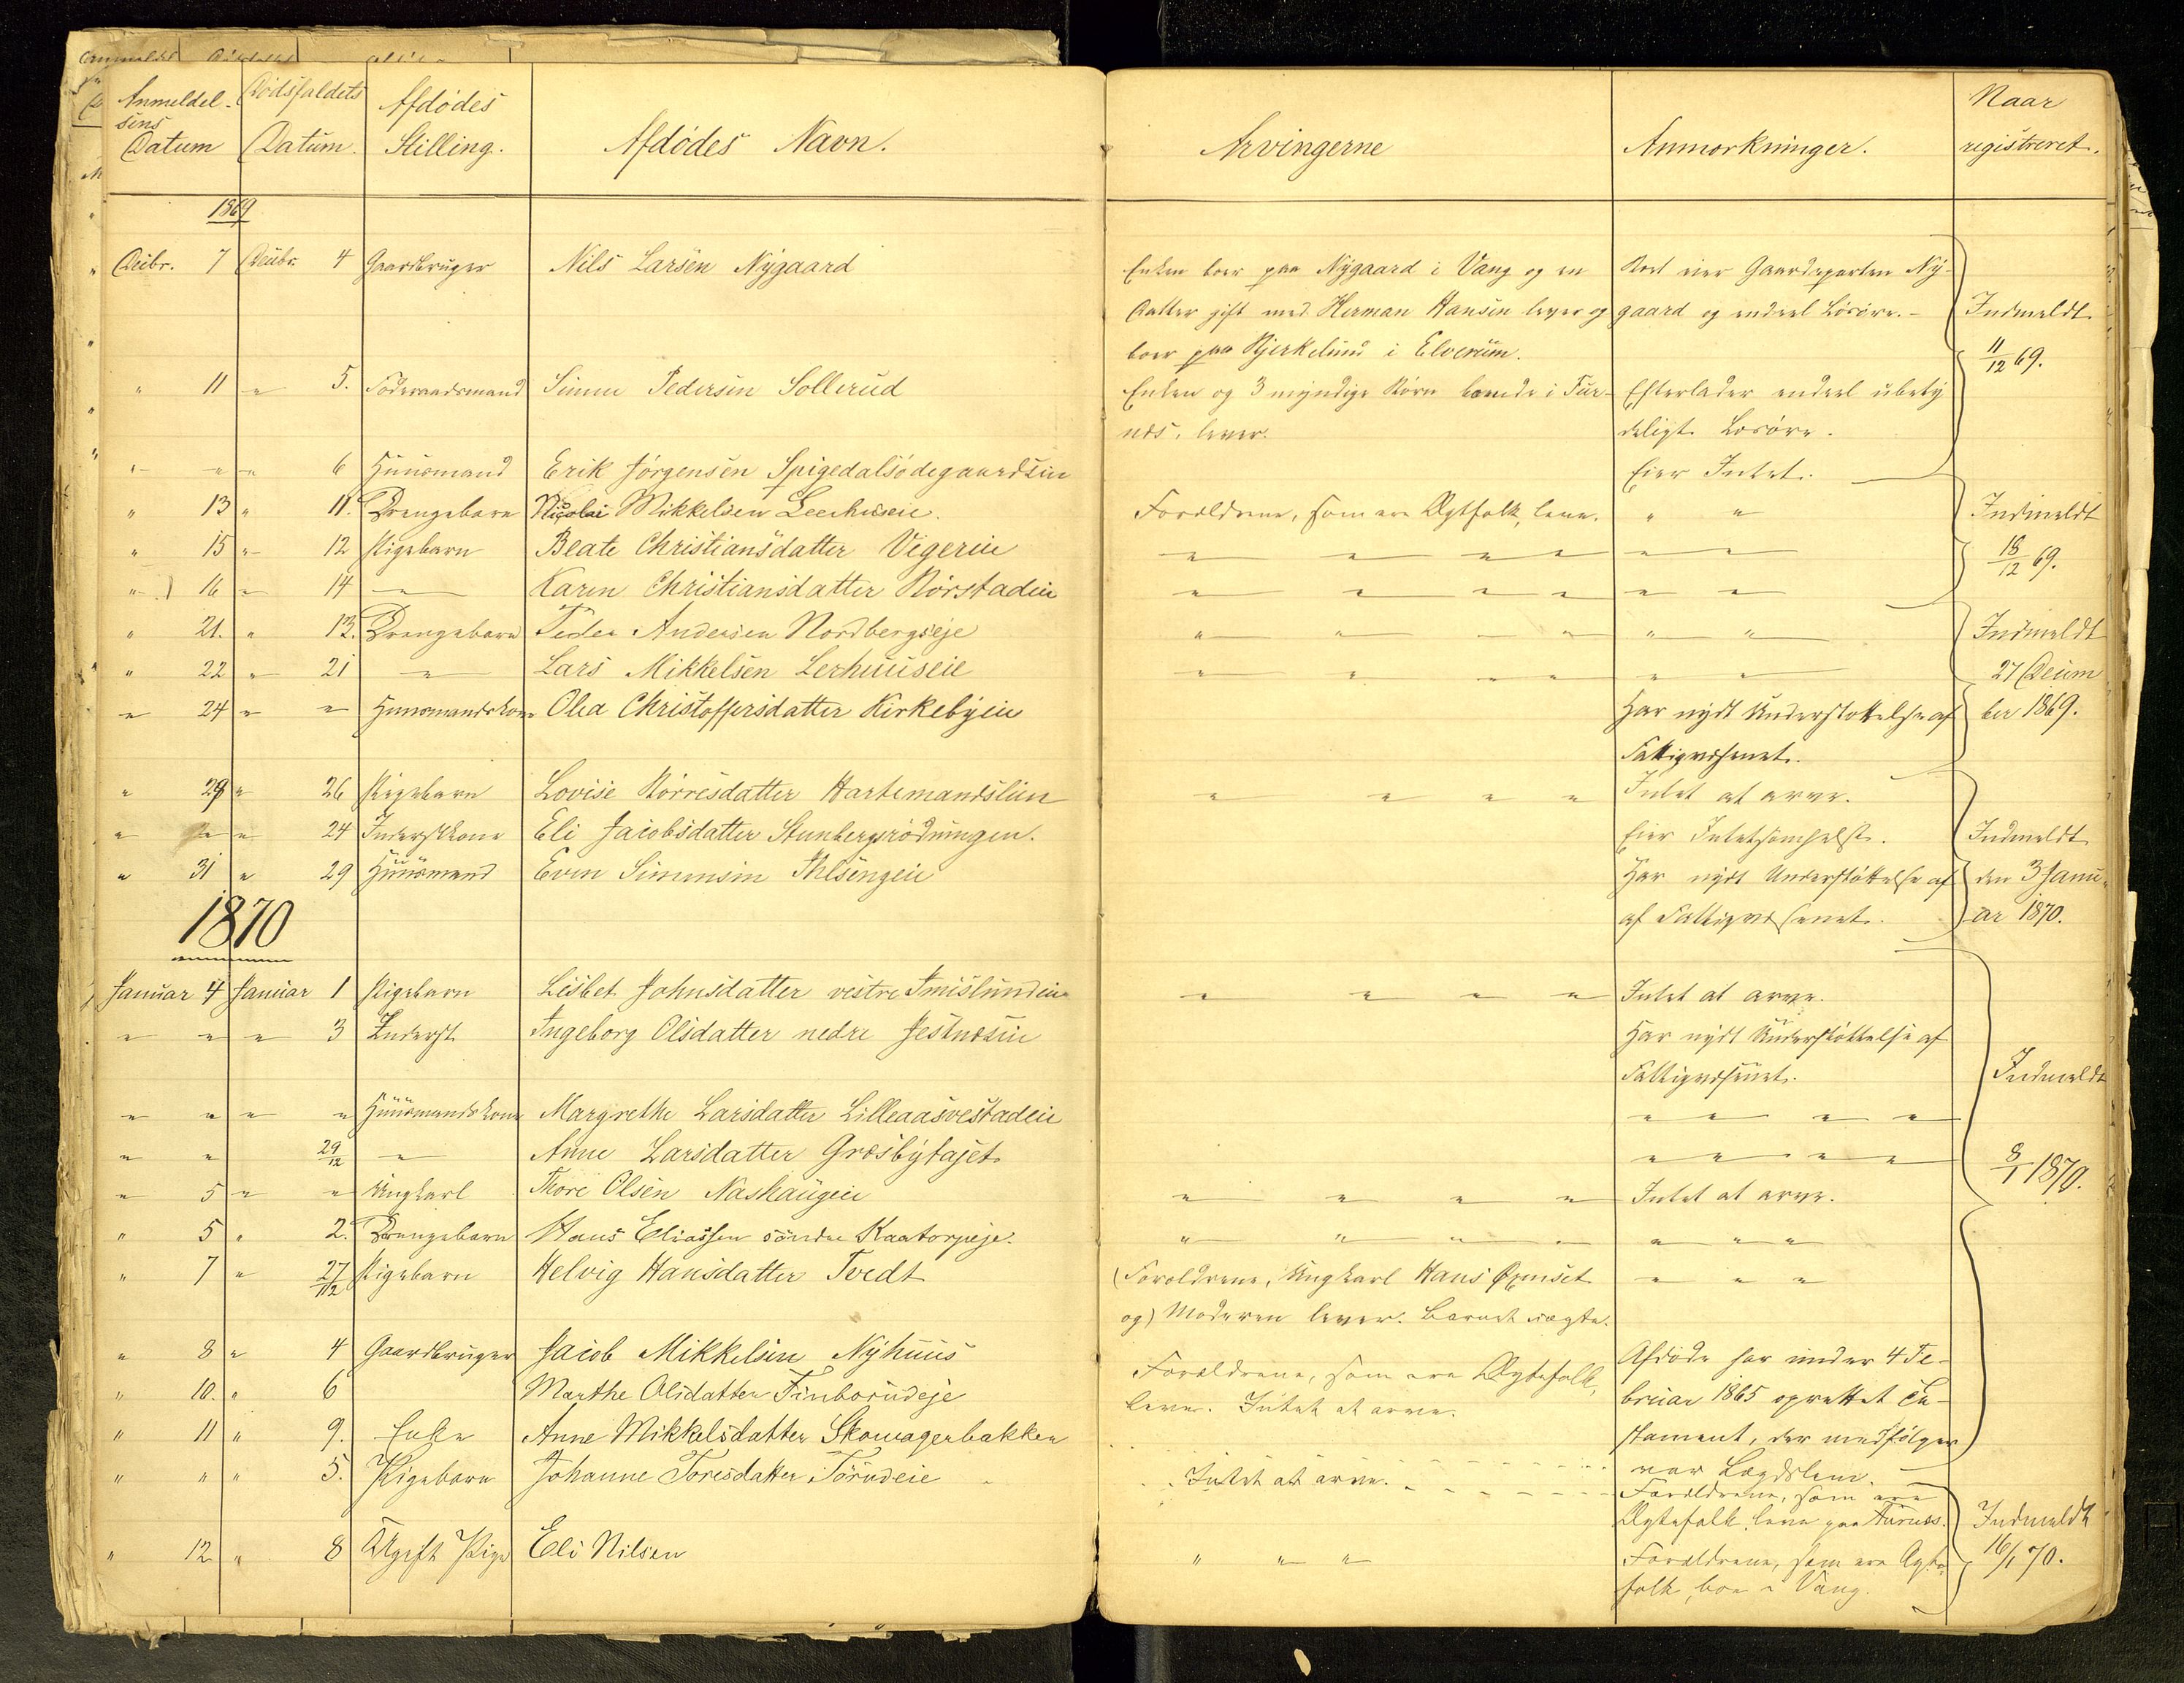 Anmeldel-
sens
Datum
Dødsfaldets
Datum.
Afdødes
Stilling.
Afdødes Navn.
Arvingerne
Anmærkninger.
Naar
registreret.
1869
Decbr. 7 Decbr. 4 Gaardbruger Nils Larsen Nygaard Enken boer paa Nygaard i Vang og en Boet eier Gaardsparten Ny-
Datter gift med Herman Hansen lever og gaard og endeel Løsøre.- Indmeldt
boer paa Bjerkelund i Elverum. 11/12 69.
" 11 " 5. Føderaadsmand Simen Pedersen Sollerud Enken og 3 myndige Børn boende i Fur- Efterlader endeel ubety
næs, lever. deligt Løsøre.
" " " 6 Huusmand Erik Jørgensen Spigedalsødegaardsen Eier Intet.
" 13 " 11. Drengebarn Nicolai Mikkelsen Leerhuseie. Forældrene, som ere Ægtfolk, leve. " " Indmeldt
" 15 " 12 Pigebarn Beate Christiansdatter Vigerie " " " " " " 18/12 69.
" 16 " 14 " Karen Christiansdatter Rørstadeie " " " " " "
" 21. " 13. Drengebarn Peder Andersen Nordbergseje " " " " " " Indmeldt
" 22 " 21 " Lars Mikkelsen Lerhuuseie " " " " " " 27 Decem
" 24 " " Huusmandskone Olea Christoffersdatter Kirkebyeie Har nydt Understøttelse af ber 1869.
Fattigvæsenet.
" 29 " 26 Pigebarn Lovise Børresdatter " " " " Intet at arve.
" " " 24 Inderstkone Eli Jacobsdatter Stenbergsrødningen. Eier Intetsomhelst. Indmeldt
" 31 " 29 Huusmand Even Simensen Har nydt Understøttelse af den 3 Janu-
af Fattigvæsenet. ar 1870.
1870
Januar 4 Januar 1 Pigebarn Lisbet Johnsdatter vestre Imislundeie " " " " Intet at arve.
" " " 3 Inderst Ingeborg Olsdatter nedre Jesnæseie Har nydt Understøttelse af
Fattigvæsenet. Indmeldt
" " " " Huusmandskone Margrethe Larsdatter Lilleaasvestadeie " " " "
" " 29/12 " Anne Larsdatter Græsbytajet " " " " 8/1 1870.
" 5 " " Ungkarl Thore Olsen Nashaugeie " " " " Intet at arve.
" 5 " 2. Drengebarn Hans Eliassen søndre Kaatorpeje. " " " " " " "
" 7 " 27/12 Pigebarn Helvig Hansdatter Tvedt (Forældrene, Ungkarl Hans " " "
og) Moderen lever. Barnet uægte.
" 8 " 4 Gaardbruger Jacob Mikkelsen Nyhuus Afdøde har under 4 Fe-
" 10. " 6 Marthe Olsdatter Finborudeje Forældrene, som ere Ægtefolk, bruar 1865 oprettet Te-
leve. Intet at arve.
" 11 " 9. Enke Anne Mikkelsdatter Skovagerbakken stament, der medfølger
var Lægdslem.
" " " 5. Pigebarn Johanne Toresdatter Torudeie Intet at arve. Forældrene, som ere
Ægtefolk, leve paa Furnæs. Indmeldt
" 12 " 8 Ugift Pige Eli Nilsen " " " Forældrene, som ere Ægte- 16/1 70.
folk, boe i Vang.